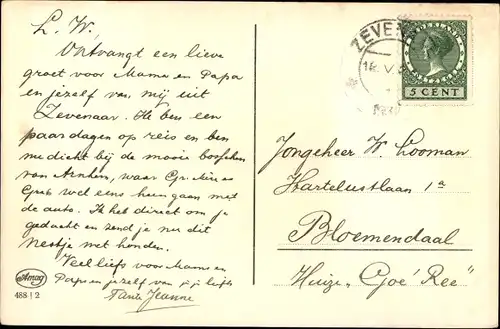 L. W.
Ontvangt een lieve
groet voor Mama en Papa
en jezelf van mij uit
Zevenaar. Ik ben een
paar dagen op reis en ben
nu dicht bij de mooie bosschen
van Arnhem, waar
wel eens heen gaan met
de auto. Ik heb direct om je
gedacht en zend je nu dit
nestje met honden.
Veel liefs voor Mama en
Papa en jezelf van
Tante Jeanne
Amag
488 | 2
ZEVEN
NEDERLAND
5 CENT
Jongeheer W. Looman
Hartelustlaan 1a
Bloemendaal
Huize „Goé Ree"